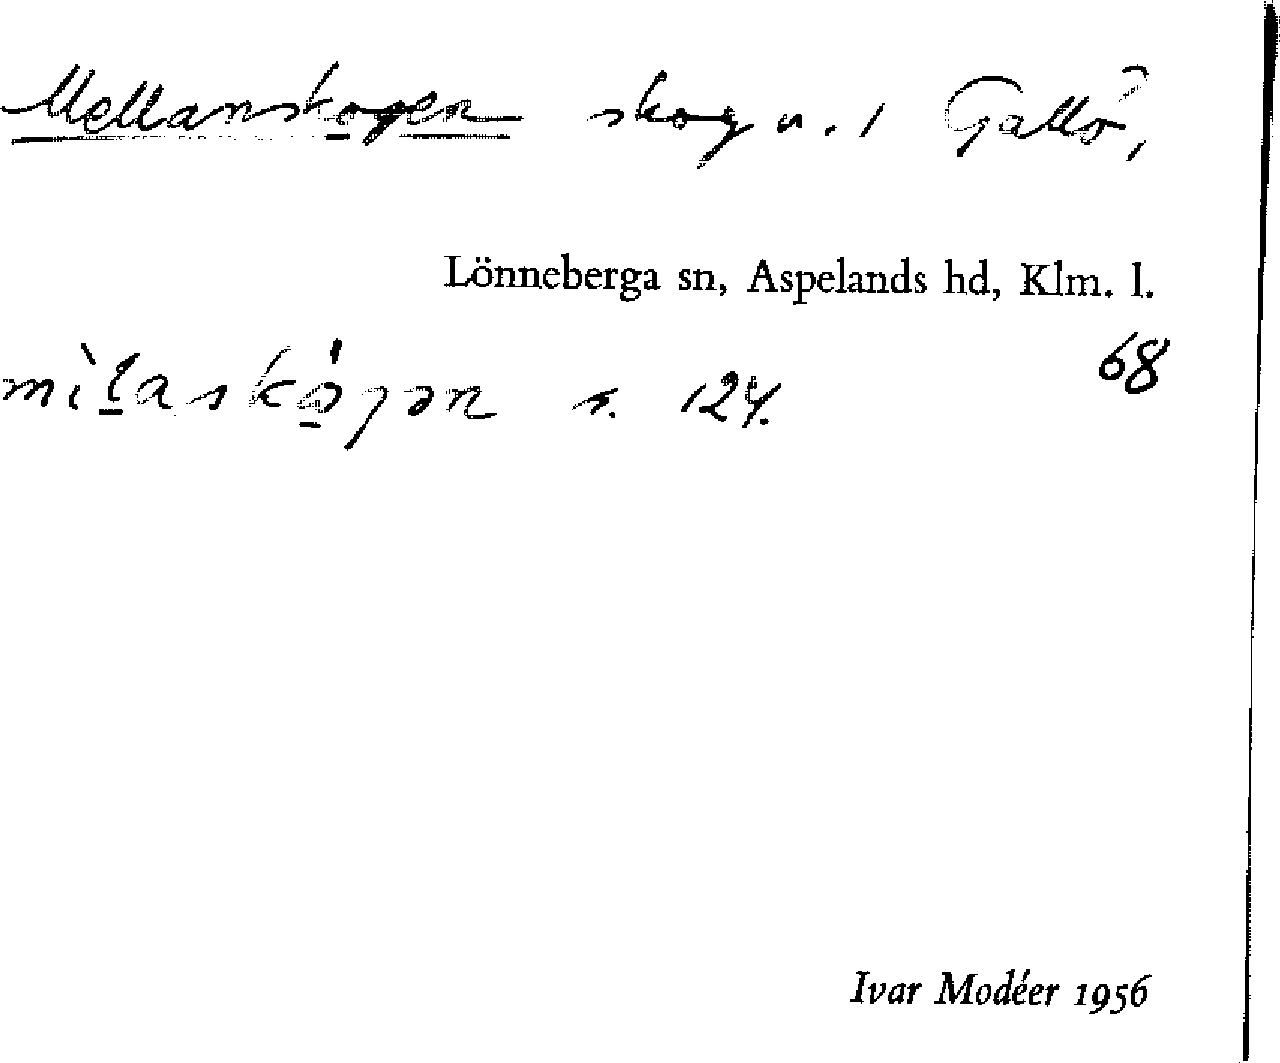 Mellanskogen skog u. / Gallö,
Lönneberga sn, Aspelands hd, Klm. l.
68
mìlaskógən s. 124.
Ivar Modéer 1956